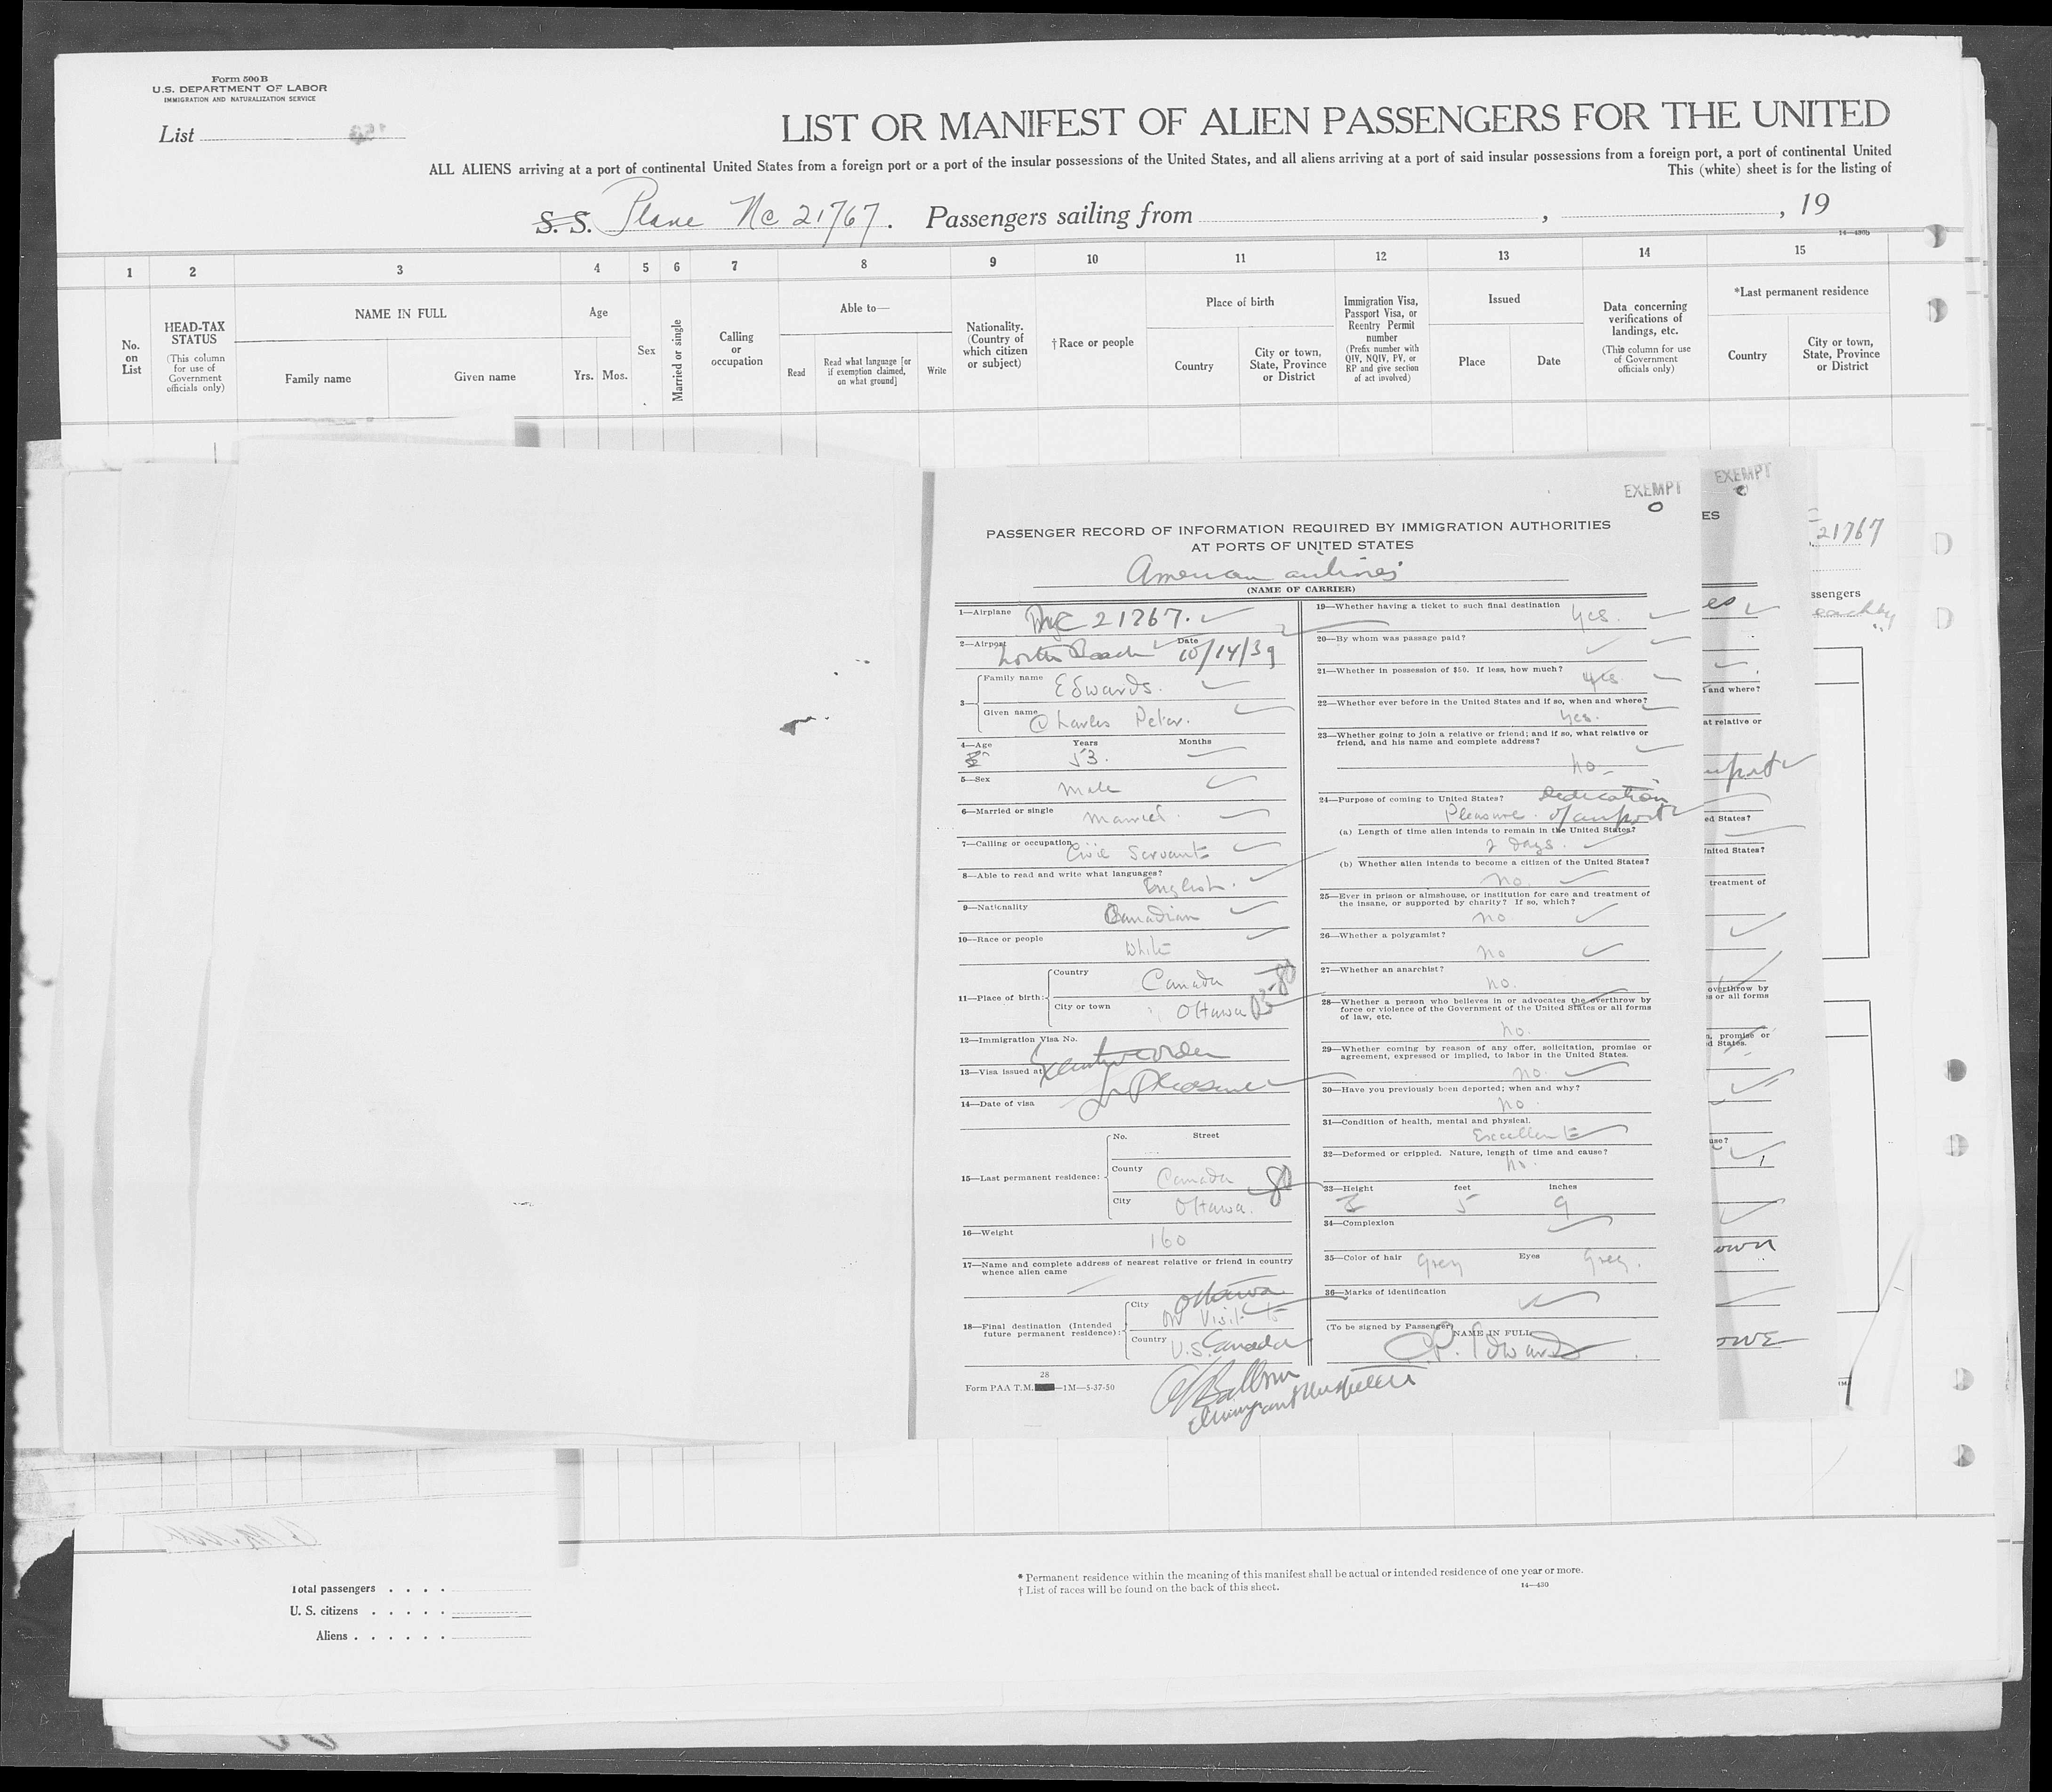 Form 500 B
U.S. DEPARTMENT OF LABOR
IMMIGRATION AND NATURALIZATION SERVICE
List
LIST OR MANIFEST OF ALIEN PASSENGERS FOR THE UNITED
ALL ALIENS arriving at a port of continental United States from a foreign port or a port of the insular possessions of the United States, and all aliens arriving at a port of said insular possessions from a foreign port, a port of continental United
This (white) sheet is for the listing of
S. S. Plane Nc 21767. Passengers sailing from , , 19
14—430b
1 2 3 4 5 6 7 8 9 10 11 12 13 14 15
No. on List
HEAD-TAX STATUS
(This column for use of Government officials only)
NAME IN FULL
Family name Given name
Age
Yrs. Mos.
Sex
Married or single
Calling or occupation
Able to—
Read
Read what language [or if exemption claimed, on what ground]
Write
Nationality. (Country of which citizen or subject)
† Race or people
Place of birth
Country
City or town, State, Province or District
Immigration Visa, Passport Visa, or Reentry Permit number
(Prefix number with QIV, NQIV, PV, or RP and give section of act involved)
Issued
Place Date
Data concerning verifications of landings, etc.
(This column for use of Government officials only)
*Last permanent residence
Country
City or town, State, Province or District
EXEMPT
PASSENGER RECORD OF INFORMATION REQUIRED BY IMMIGRATION AUTHORITIES
AT PORTS OF UNITED STATES
American airlines
(NAME OF CARRIER)
1—Airplane NC 21767.
2—Airport North Beach Date 10/14/39
3— Family name Edwards.
Given name Charles Peter.
4—Age Years 53. Months
5—Sex Male
6—Married or single Married.
7—Calling or occupation Civil Servant
8—Able to read and write what languages? English.
9—Nationality Canadian
10—Race or people White
11—Place of birth: Country Canada
City or town Ottawa
12—Immigration Visa No.
13—Visa issued at
14—Date of visa
15—Last permanent residence: No. Street
County Canada
City Ottawa.
16—Weight 160
17—Name and complete address of nearest relative or friend in country whence alien came
18—Final destination (Intended future permanent residence): City Ottawa
on Visit to
Country U.S. Canada
28
Form PAA T.M. —1M—5-37-50
19—Whether having a ticket to such final destination Yes.
20—By whom was passage paid?
21—Whether in possession of $50. If less, how much? Yes.
22—Whether ever before in the United States and if so, when and where?
Yes.
23—Whether going to join a relative or friend; and if so, what relative or friend, and his name and complete address?
No
24—Purpose of coming to United States? Dedication
Pleasure. of airport
(a) Length of time alien intends to remain in the United States?
2 days.
(b) Whether alien intends to become a citizen of the United States?
no.
25—Ever in prison or almshouse, or institution for care and treatment of the insane, or supported by charity? If so, which?
no
26—Whether a polygamist?
no
27—Whether an anarchist?
no.
28—Whether a person who believes in or advocates the overthrow by force or violence of the Government of the United States or all forms of law, etc.
no.
29—Whether coming by reason of any offer, solicitation, promise or agreement, expressed or implied, to labor in the United States.
no.
30—Have you previously been deported; when and why?
no.
31—Condition of health, mental and physical.
Excellent
32—Deformed or crippled. Nature, length of time and cause?
no.
33—Height feet 5 inches 9
34—Complexion
35—Color of hair Grey Eyes Grey.
36—Marks of identification
(To be signed by Passenger) NAME IN FULL
C.P. Edwards
EXEMPT
ES
and where?
at relative or
ed States?
nited States?
treatment of
overthrow by
s or all forms
n, promise or
d States.
use?
own
OWE
21767
ssengers
Total passengers . . . .
U. S. citizens . . . . .
Aliens . . . . . .
* Permanent residence within the meaning of this manifest shall be actual or intended residence of one year or more.
† List of races will be found on the back of this sheet.
14—430